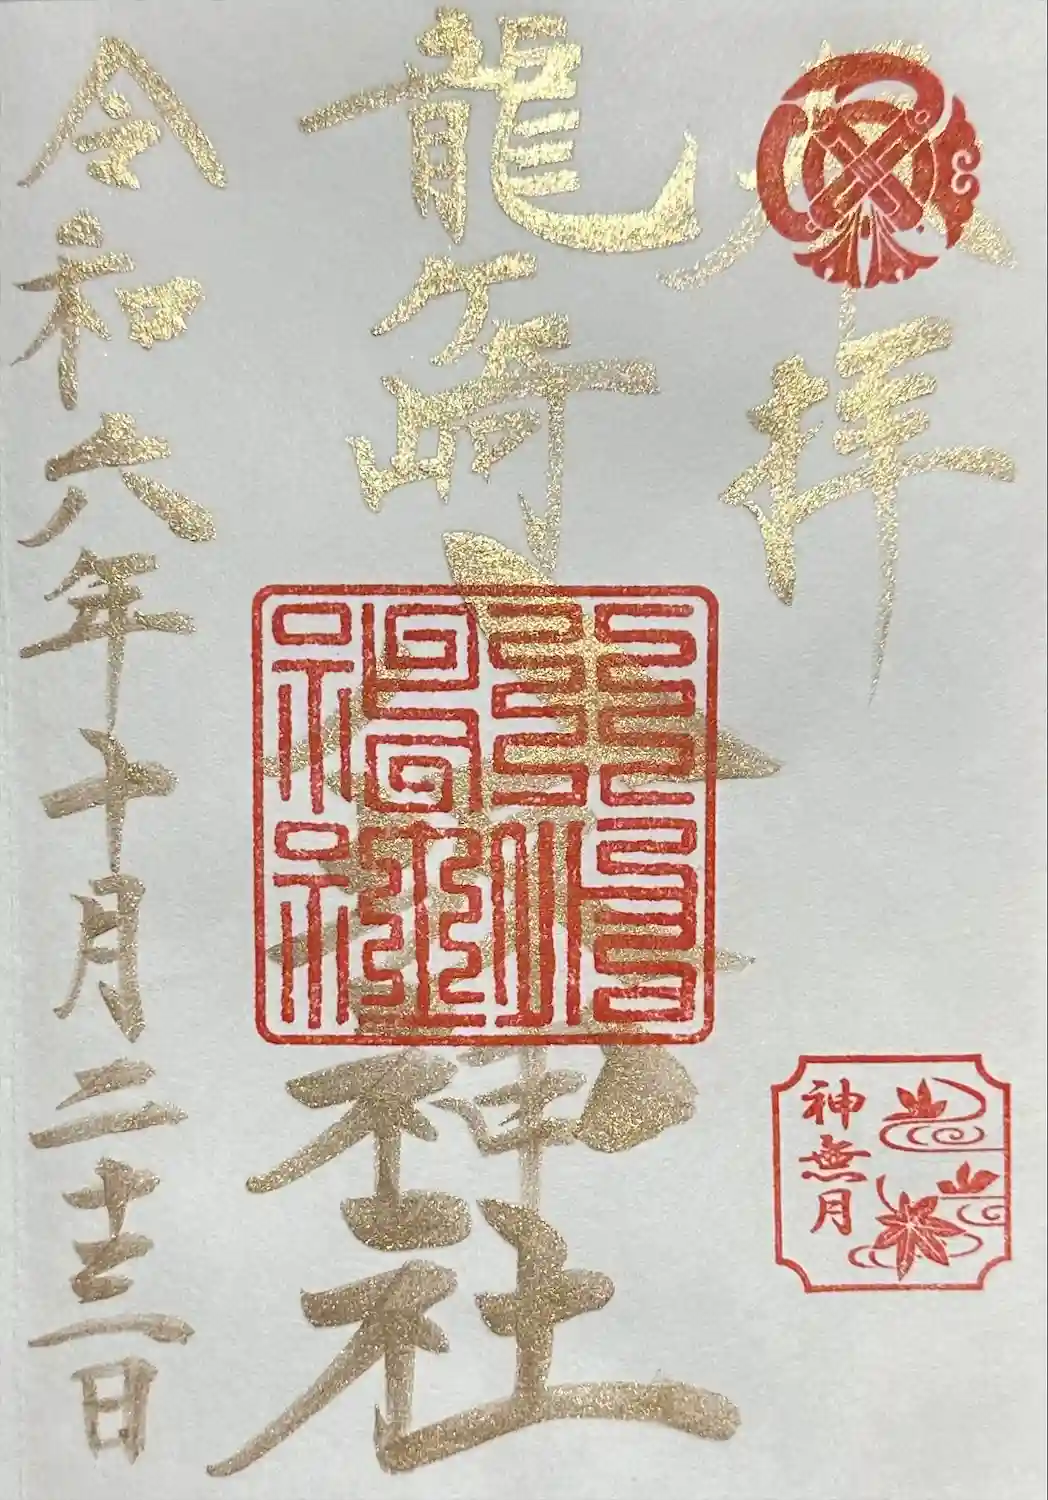 奉拝
龍ケ崎
神社
令和六年十月二十三日
神無月